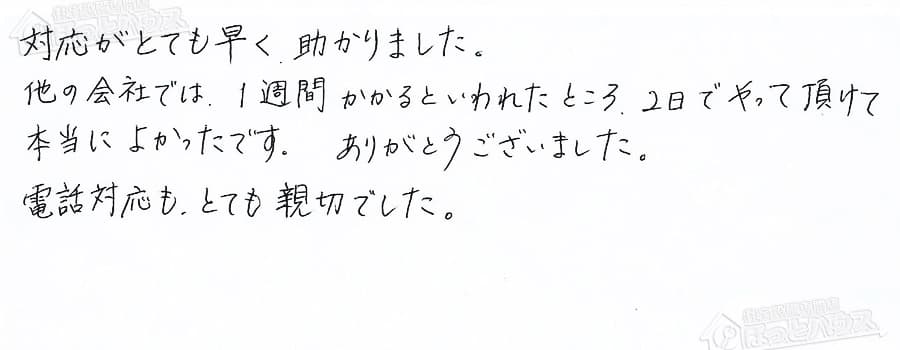 対応がとても早く、助かりました。
他の会社では、1週間かかるといわれたところ、2日でやって頂けて
本当によかったです。 ありがとうございました。
電話対応も、とても親切でした。
ほっとハウス